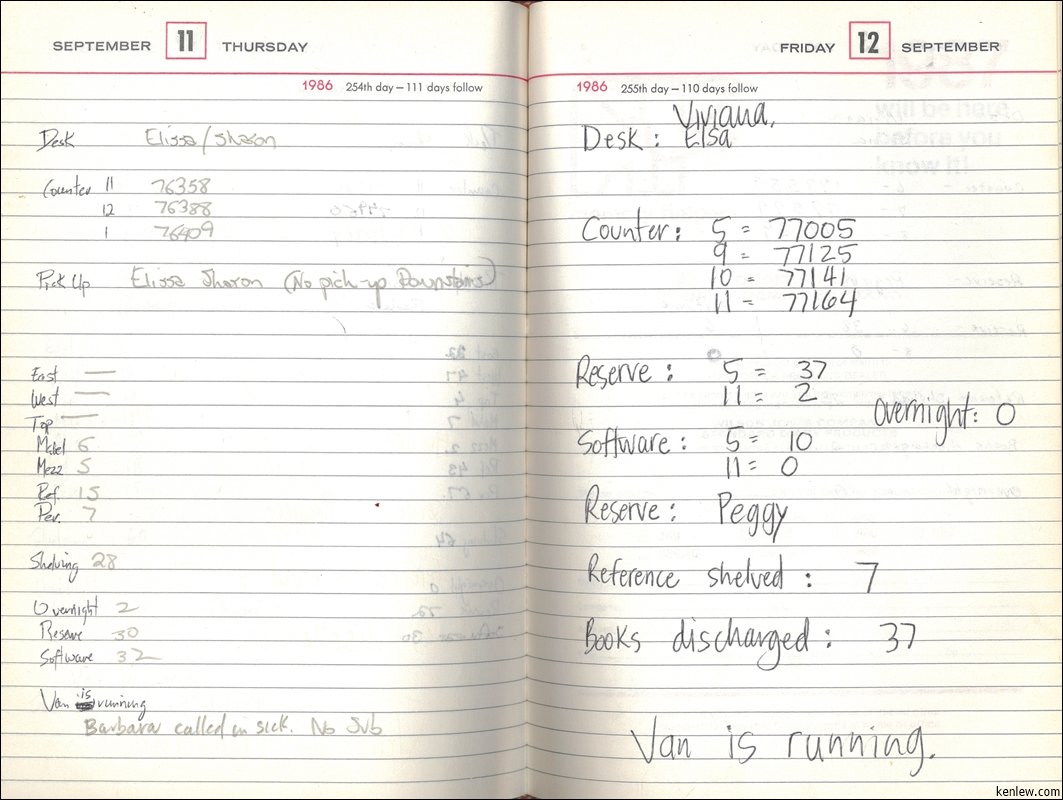 SEPTEMBER 11 THURSDAY
1986 254th day — 111 days follow
Desk Elissa/Sharon
Counter 11 76358
12 76388
1 76409
Pick Up Elissa Sharon (No pick-up Downstairs)
East —
West —
Top —
Mabel 6
Mezz 5
Ref. 15
Per. 7
Shelving 28
Overnight 2
Reserve 30
Software 32
Van is running
Barbara called in sick. No Sub
FRIDAY 12 SEPTEMBER
1986 255th day — 110 days follow
Viviana,
Desk: Elsa
Counter: 5 = 77005
9 = 77125
10 = 77141
11 = 77164
Reserve: 5 = 37
11 = 2
Overnight: 0
Software: 5 = 10
11 = 0
Reserve: Peggy
Reference shelved: 7
Books discharged: 37
Van is running.
kenlew.com